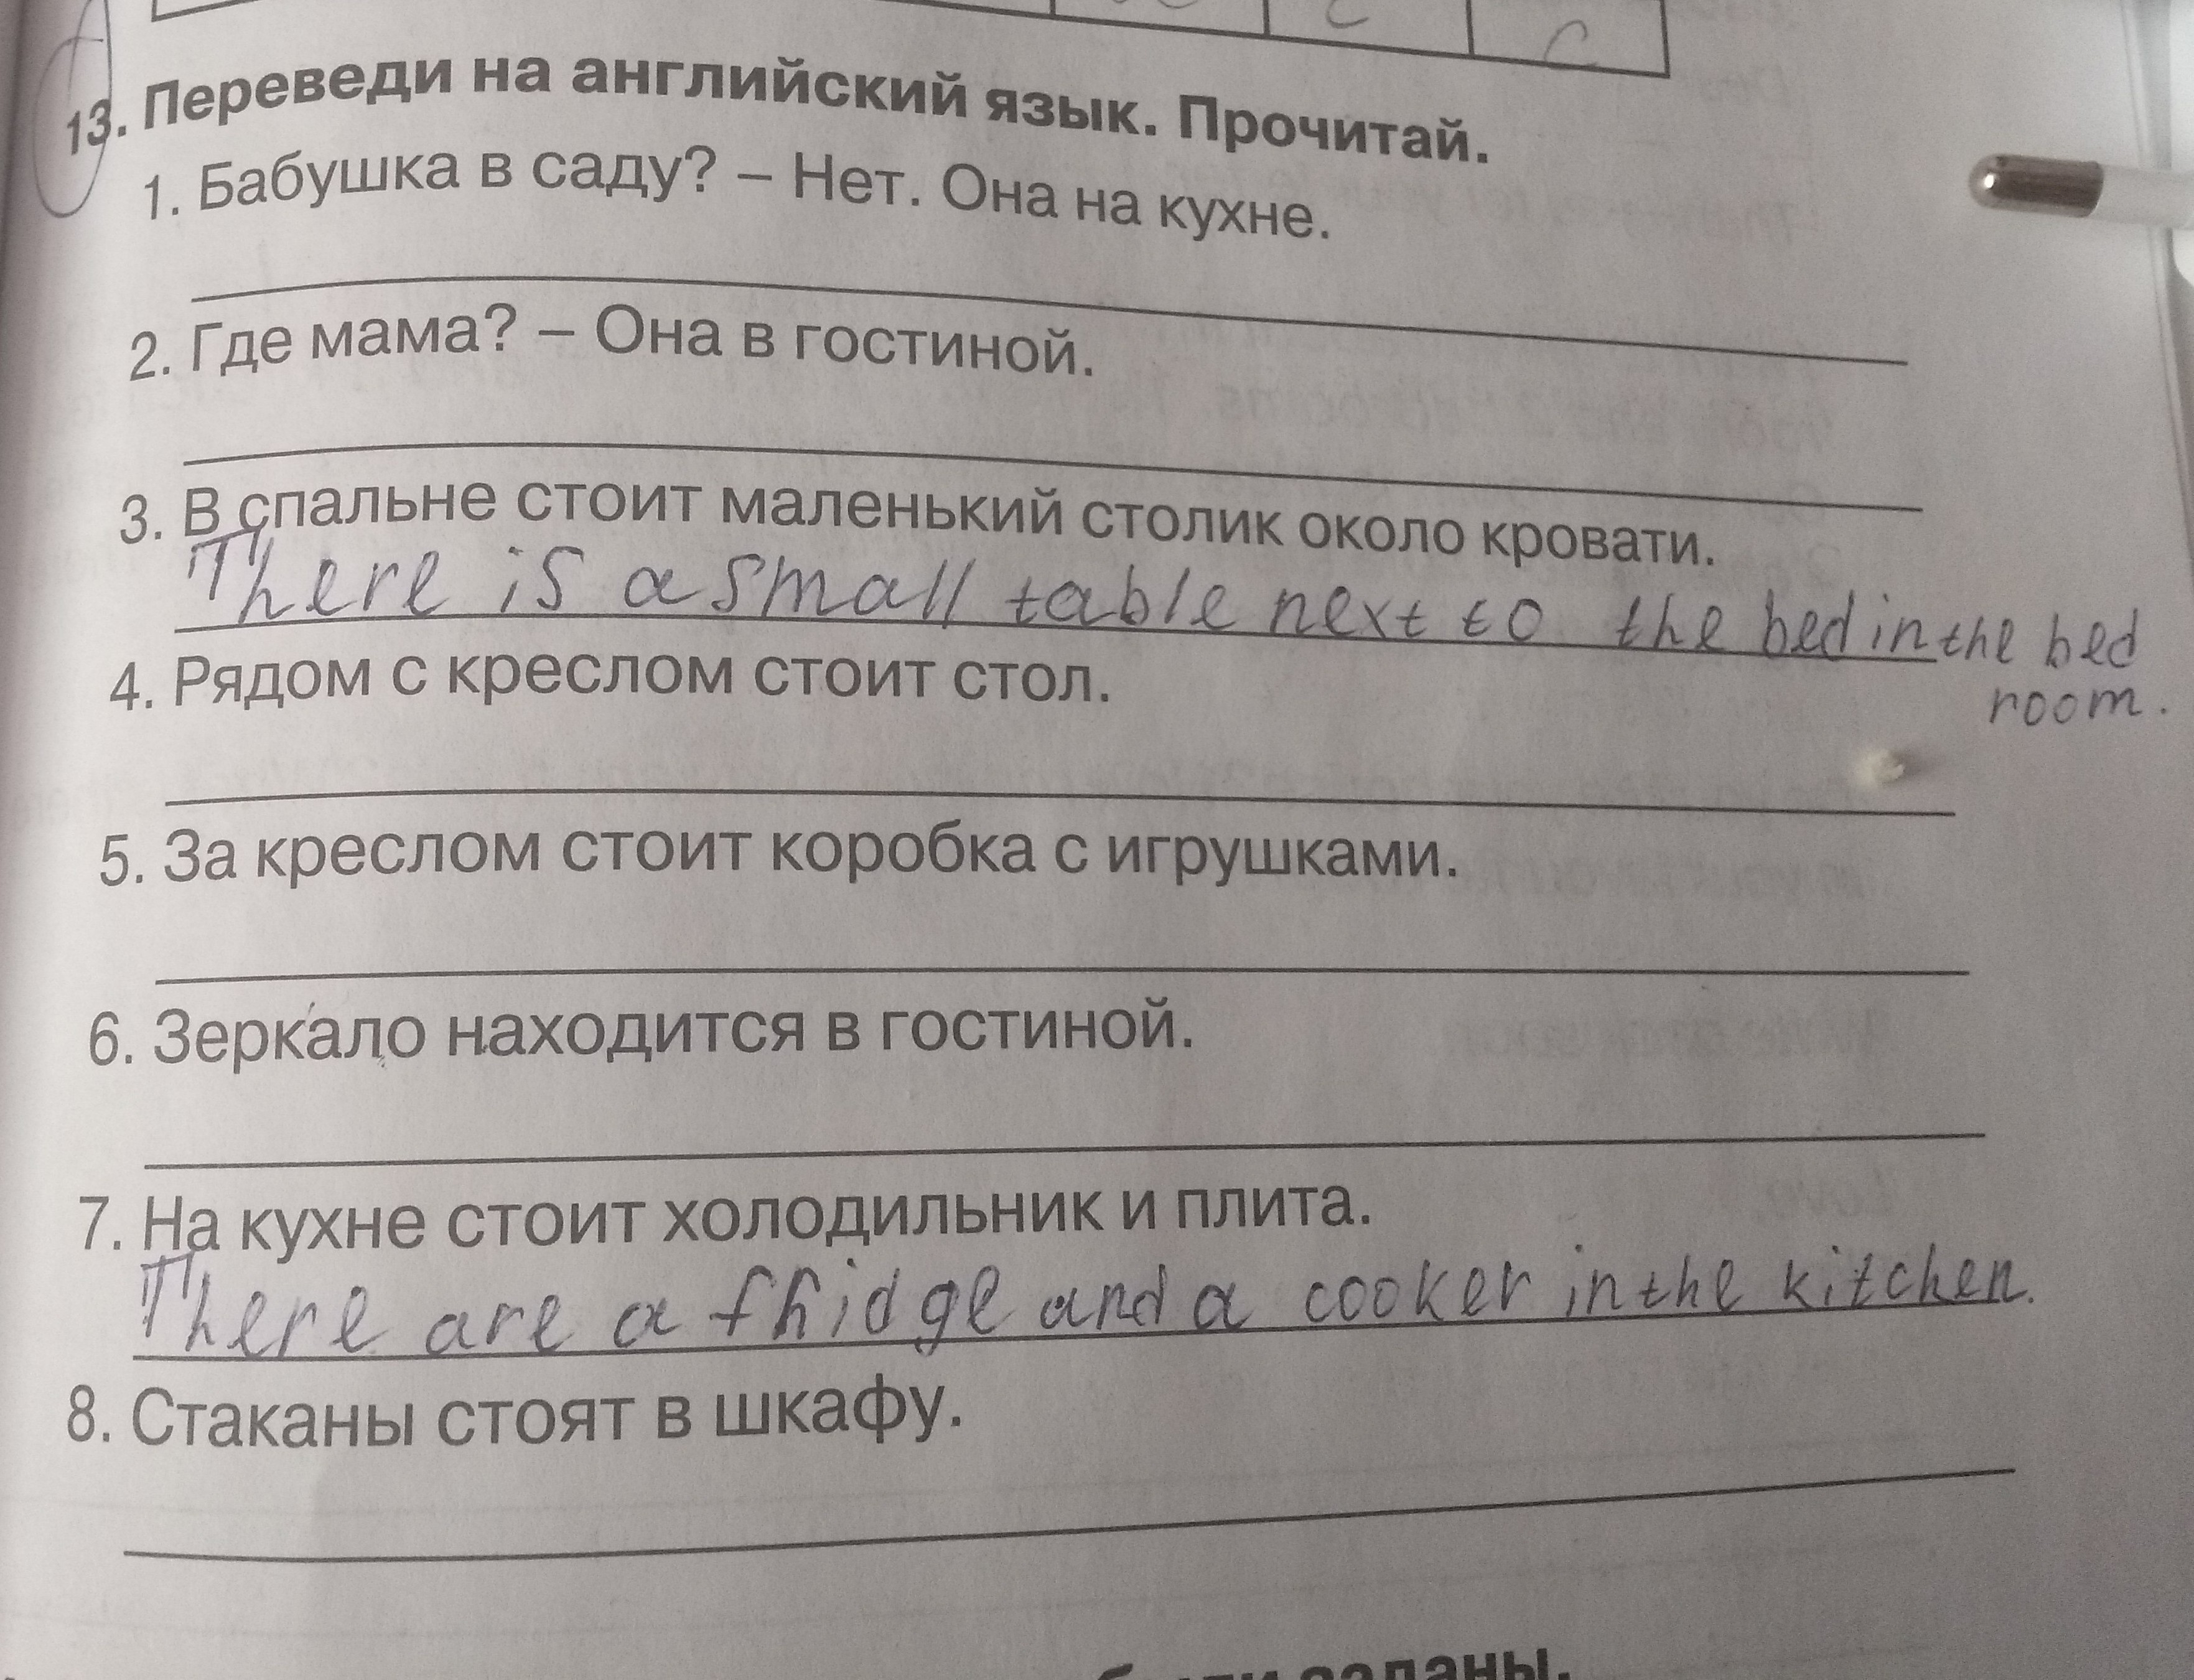 c
c
13. Переведи на английский язык. Прочитай.
1. Бабушка в саду? – Нет. Она на кухне.
2. Где мама? – Она в гостиной.
3. В спальне стоит маленький столик около кровати.
There is a small table next to the bed in the bed
room.
4. Рядом с креслом стоит стол.
5. За креслом стоит коробка с игрушками.
6. Зеркало находится в гостиной.
7. На кухне стоит холодильник и плита.
There are a fridge and a cooker in the kitchen.
8. Стаканы стоят в шкафу.
были заданы.